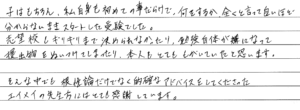 子はもちろん、私自身も初めての事だらけで、何をするか全くと言って良いほど
分からないままスタートした受験でした。
志望校もギリギリまで決められなかったり、勉強自体が嫌になって
提出物をぬいつけてしまったり、本人もとてももがいていたと思います。
そんな中でも根性論だけでなく的確なアドバイスをしてくださった
エイメイの先生方にはとても感謝しています。